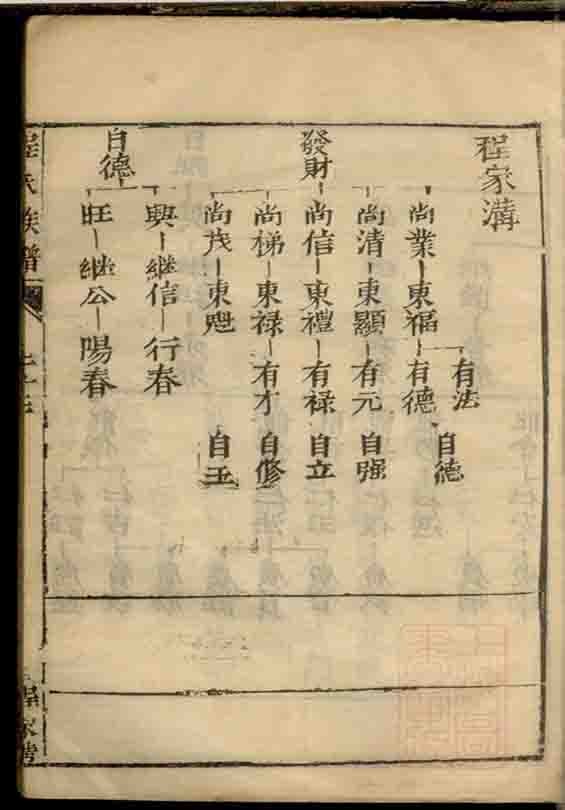 程家溝
有法
尚業 東福 有德 自德
尚清 東顯 有元 自强
發財 尚信 東禮 有禄 自立
尚梯 東禄 有才 自修
尚茂 東 自玉
興 繼信 行春
自德
旺 繼公 陽春
程氏族譜